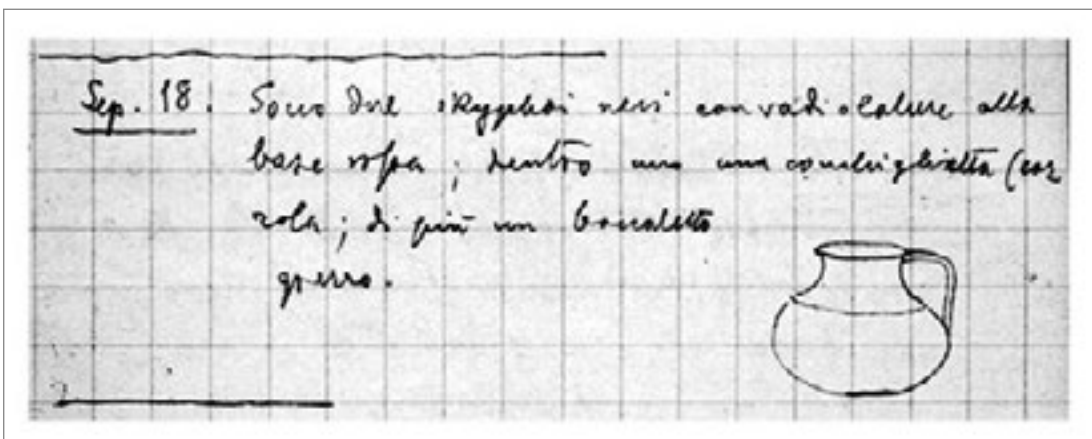 Sep. 18. Sono due skyphoi neri con radi olature alla
base rossa; dentro uno una conchiglietta (coz
zola; di più un boccaletto
grezzo.